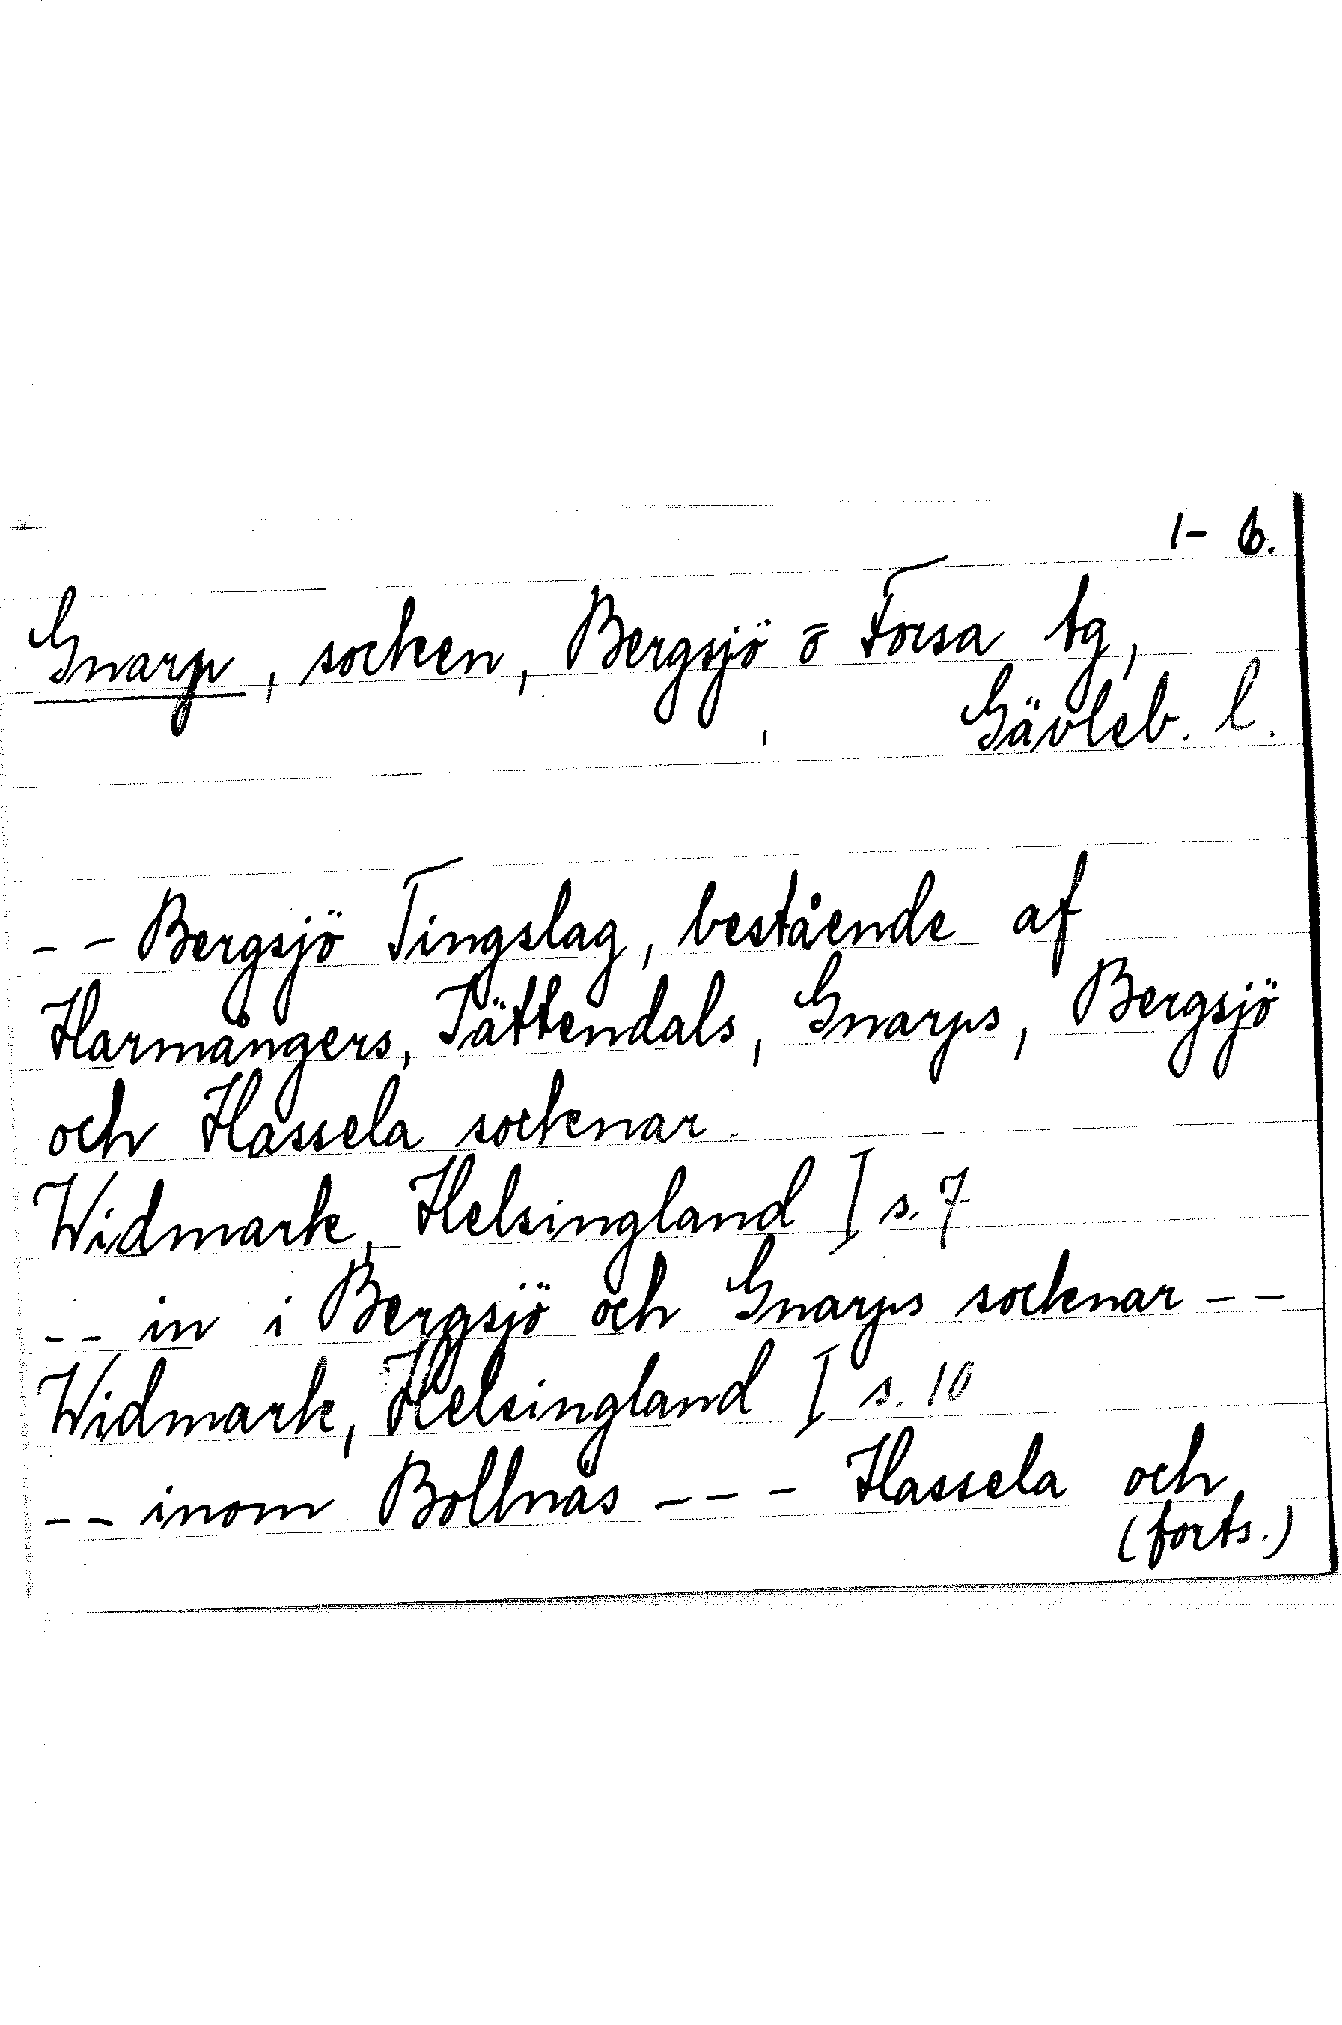 1- 6.
Gnarp, socken, Bergsjö o Forsa tg,
Gävleb. l.
-- Bergsjö Tingslag, bestående af
Harmångers, Jättendals, Gnarps, Bergsjö
och Hassela socknar.
Widmark, Helsingland I s. 7
-- in i Bergsjö och Gnarps socknar --
Widmark, Helsingland I s. 10
-- inom Bollnäs --- Hassela och
(forts.)